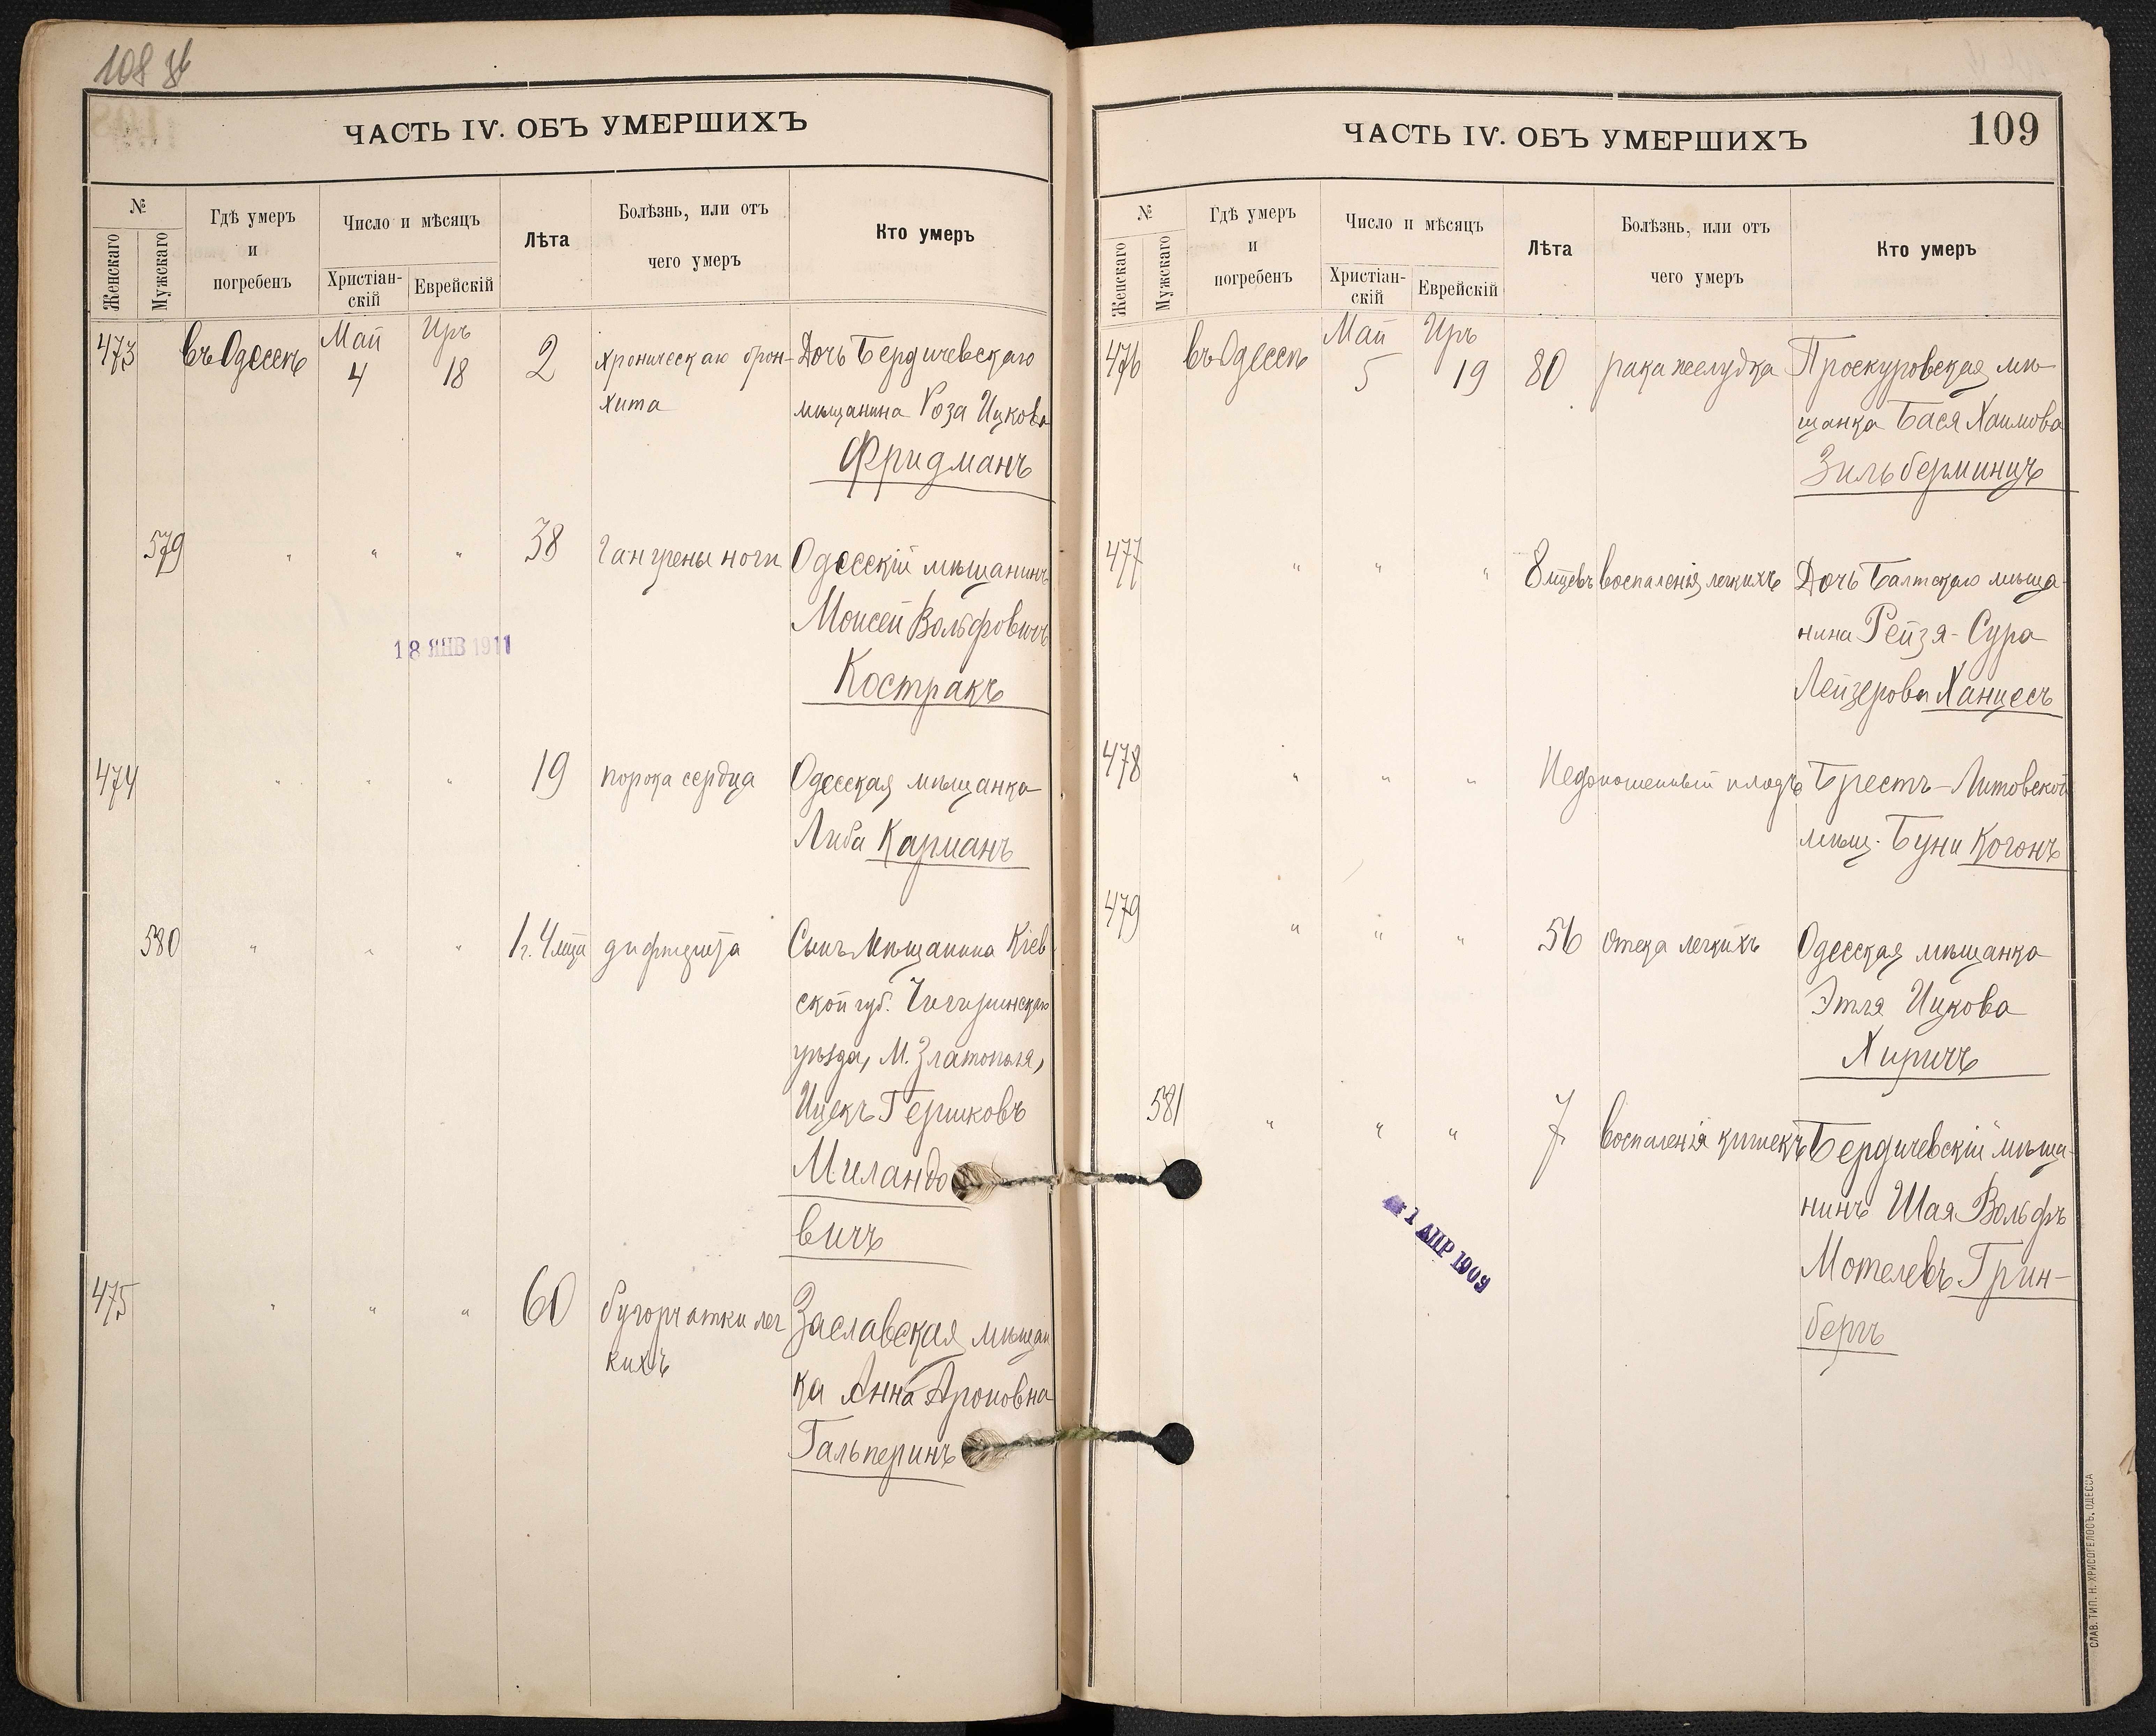 108 об
ЧАСТЬ IV. ОБЪ УМЕРШИХЪ
№
Женскаго
Мужскаго
Гдѣ умеръ
и
погребенъ
Число и мѣсяцъ
Христіан-
скій
Еврейскій
Лѣта
Болѣзнь, или отъ
чего умеръ
Кто умеръ
473 въ Одессѣ Май Иръ
4 18 2 хроническаго брон-
хита
Дочь Бердичевскаго
мѣщанина Роза Ицкова
Фридманъ
579 " " " 38 гангрены ноги Одесскій мѣщанинъ
Моисей Вольфовичъ
Костракъ
18 ЯНВ 1911
474 " " " 19 порока сердца Одесская мѣщанка
Либа Карманъ
580 " " " 1 г. 4 мѣца дифтерита Сынъ мѣщанина Кіев
ской губ. Чигиринскаго
уѣзда, М. Златополя,
Ицекъ Гершковъ
Миландо
вичъ
475 " " " 60 бугорчатки лег
кихъ
Заславская мѣщан
ка Анна Ароновна
Гальперинъ
ЧАСТЬ IV. ОБЪ УМЕРШИХЪ
109
№
Женскаго
Мужскаго
Гдѣ умеръ
и
погребенъ
Число и мѣсяцъ
Христіан-
скій
Еврейскій
Лѣта
Болѣзнь, или отъ
чего умеръ
Кто умеръ
476 въ Одессѣ Май Иръ
5 19 80 рака желудка Проскуровская мѣ-
щанка Бася Хаимова
Зильберминцъ
477 " " " 8 мцевъ воспаленія легкихъ Дочь Балтскаго мѣща-
нина Рейзя-Сура
Лейзерова Ханцесъ
478 " " " Недоношенный плодъ Брестъ-Литовской
мѣщ. Буни Когонъ
479 " " " 56 отека легкихъ Одесская мѣщанка
Этля Ицкова
Хиричъ
581 " " " 7 воспаленія кишекъ Бердичевскій мѣща-
нинъ Шая Вольфъ
Мотелевъ Грин-
бергъ
1 АПР 1909
СЛАВ. ТИП. Н. ХРИСОГЕЛОСЪ, ОДЕССА